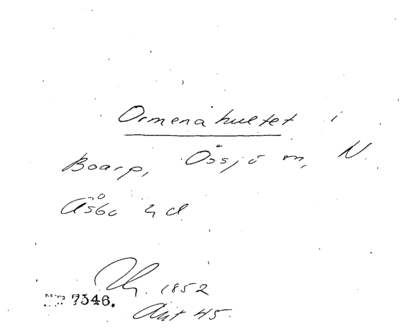 Ormenähultet i
Boarp, Össjö sn, N.
Åsbo hd
1852
Nr 7346.
Ant 45.